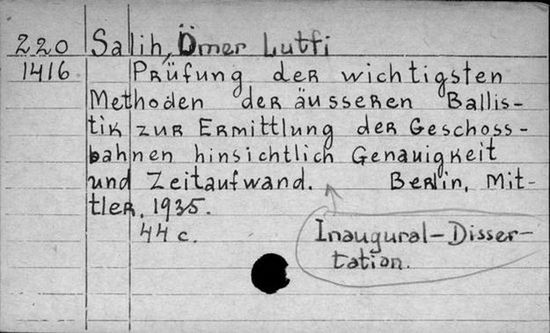 220 Salih, Ömer Lutfi
1416 Prüfung der wichtigsten
Methoden der äusseren Ballis-
tik zur Ermittlung der Geschoss-
bahnen hinsichtlich Genauigkeit
und Zeitaufwand. Berlin, Mit-
tler, 1935.
44 c.
Inaugural-Disser-
tation.